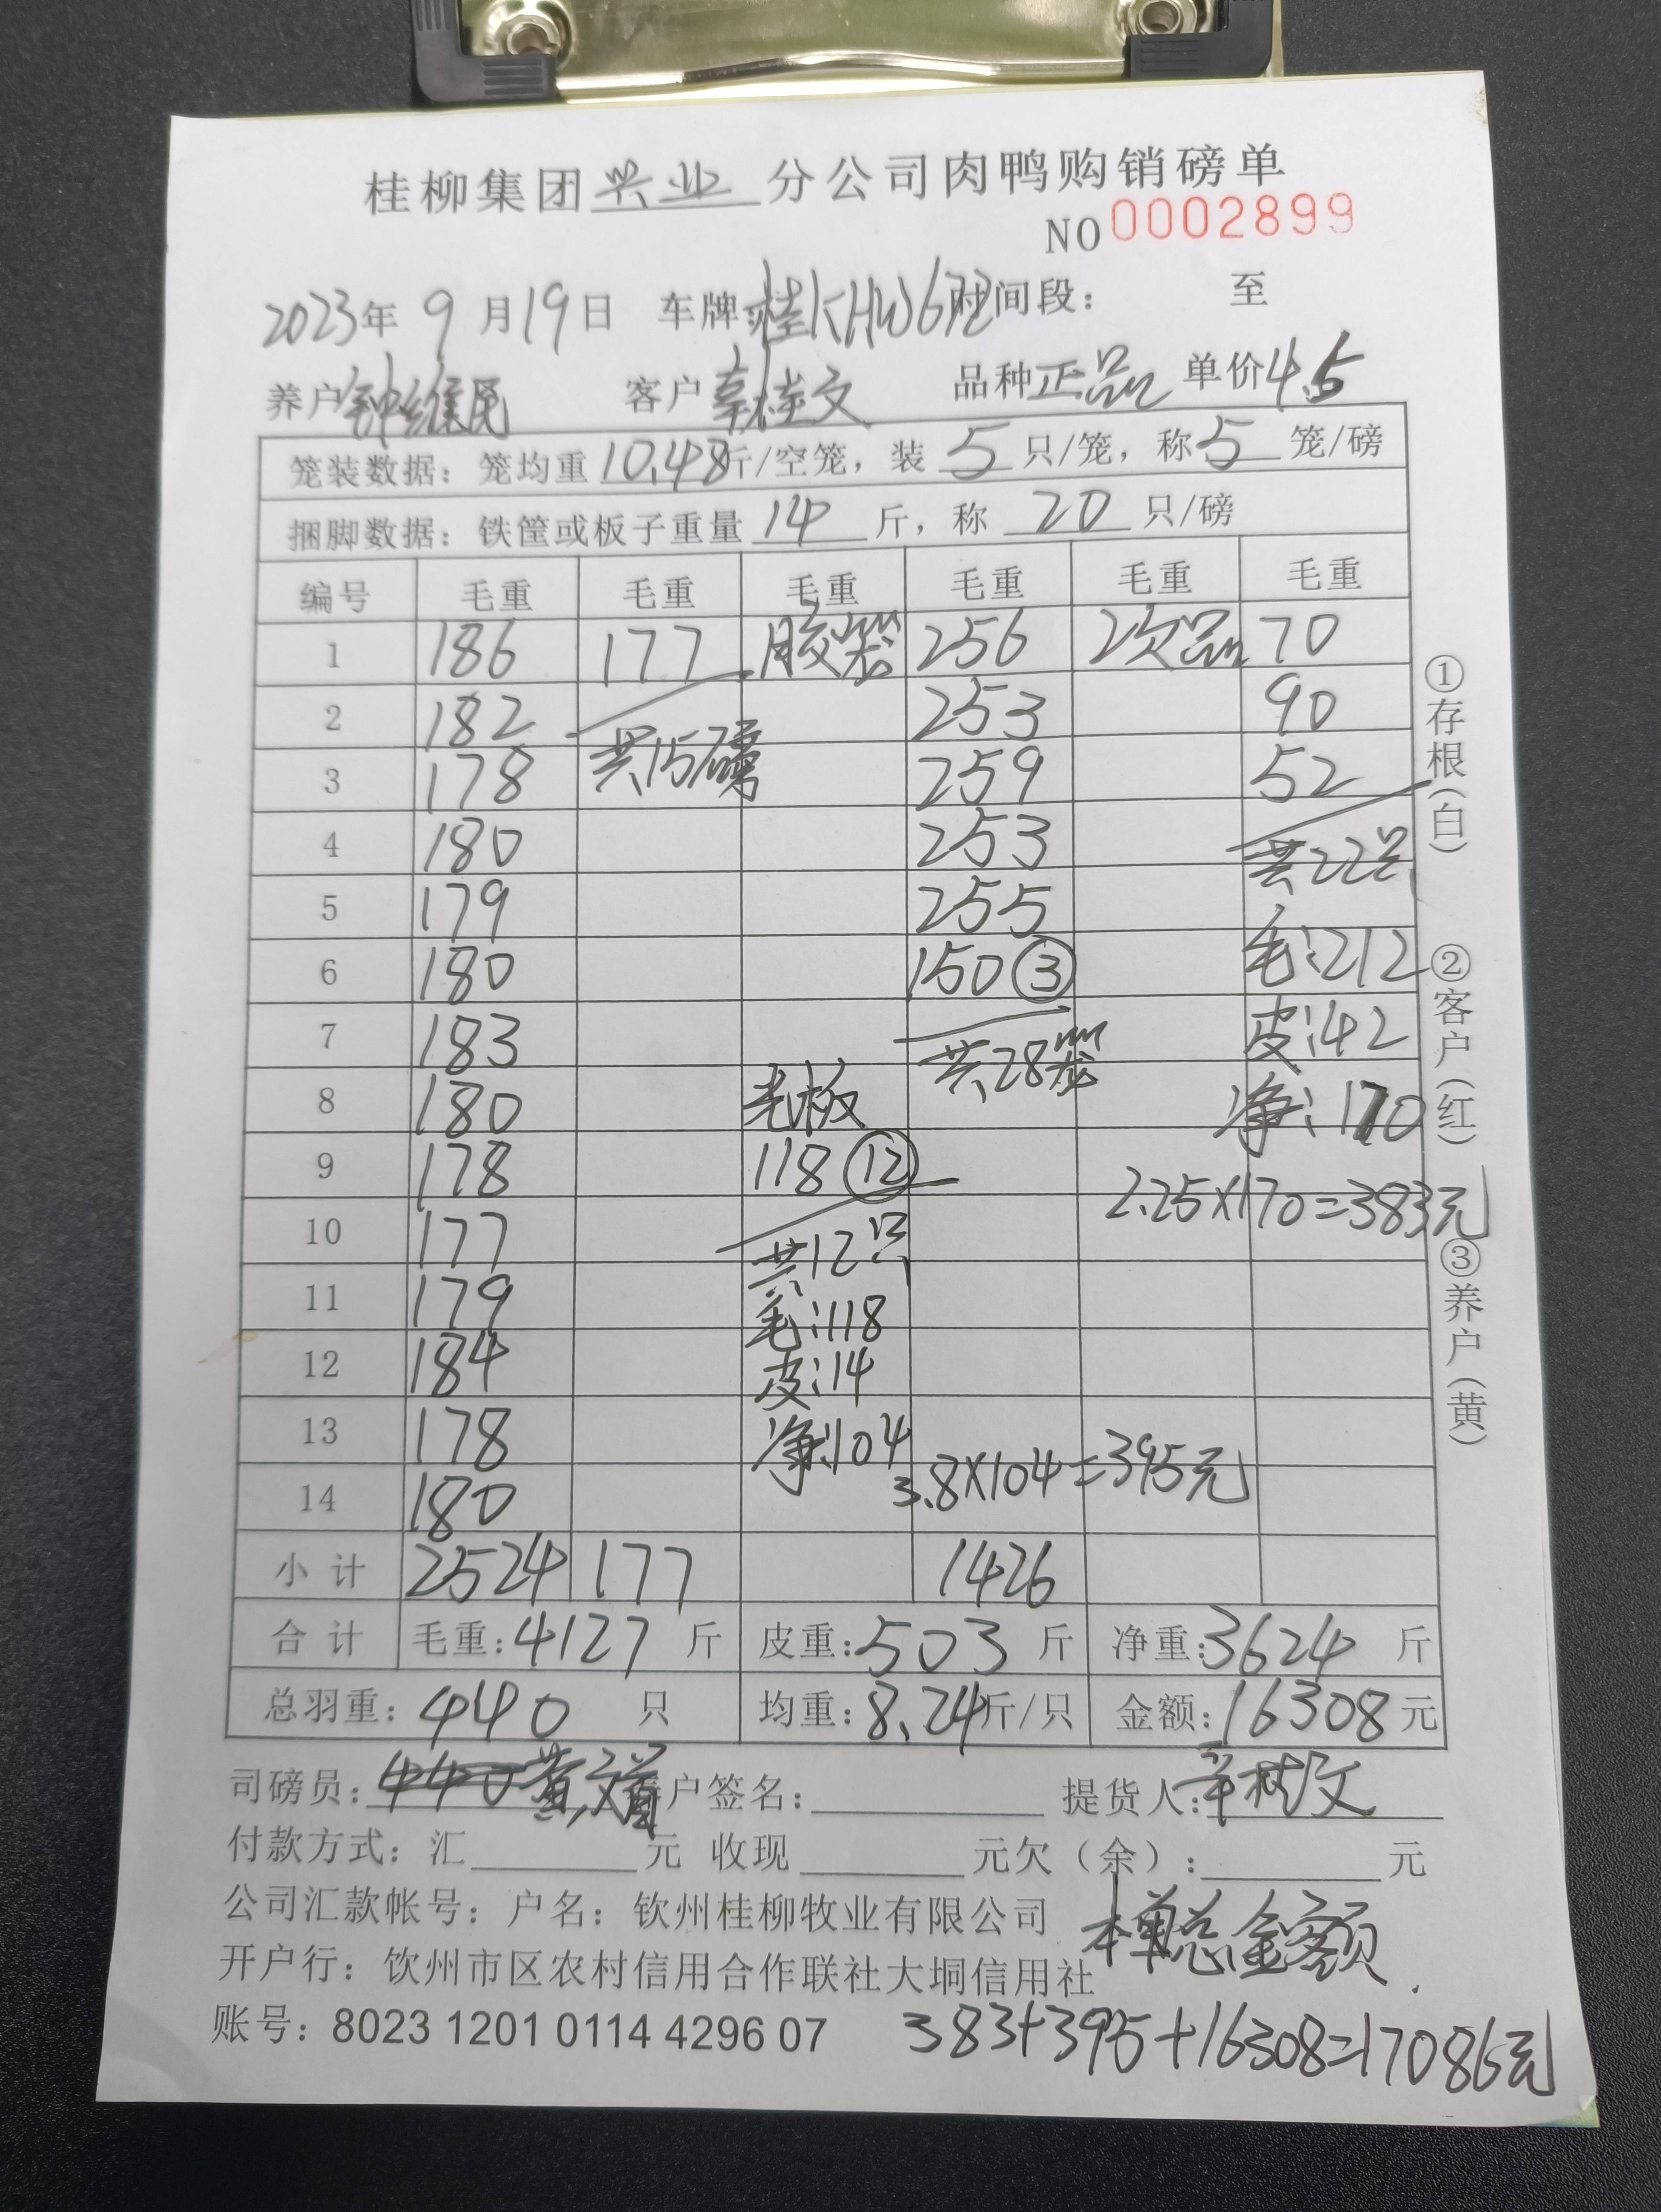 桂柳集团兴业分公司肉鸭购销磅单
NO 0002899
2023年9月19日 车牌:桂KHW672 时间段: 至
养户 钟维凤 客户 文 品种 正品 单价 4.5
笼装数据: 笼均重 10.48 斤/空笼, 装 5 只/笼, 称 5 笼/磅
捆脚数据: 铁筐或板子重量 14 斤, 称 20 只/磅
编号 毛重 毛重 毛重 毛重 毛重 毛重
1 186 177 胶笼 256 次品 70
2 182 共15磅 253 90
3 178 259 52
4 180 253 共22只
5 179 255
6 180 150 ③ 毛:212
7 183 共28笼 皮:42
8 180 光板 净:170
9 178 118 ⑫ 2.25×170=383元
10 177 共12只
11 179 毛:118
12 184 皮:14
13 178 净:104
14 180 3.8×104=395元
小计 2524 177 1426
合计 毛重:4127斤 皮重:503斤 净重:3624斤
总羽重:440只 均重:8.24斤/只 金额:16308元
司磅员: 黄 户签名: 提货人: 文
付款方式: 汇 元 收现 元欠(余): 元
公司汇款帐号: 户名: 钦州桂柳牧业有限公司
本单总金额
开户行: 饮州市区农村信用合作联社大垌信用社
账号: 8023 1201 0114 4296 07
383+395+16308=17086元
①存根(白)
②客户(红)
③养户(黄)